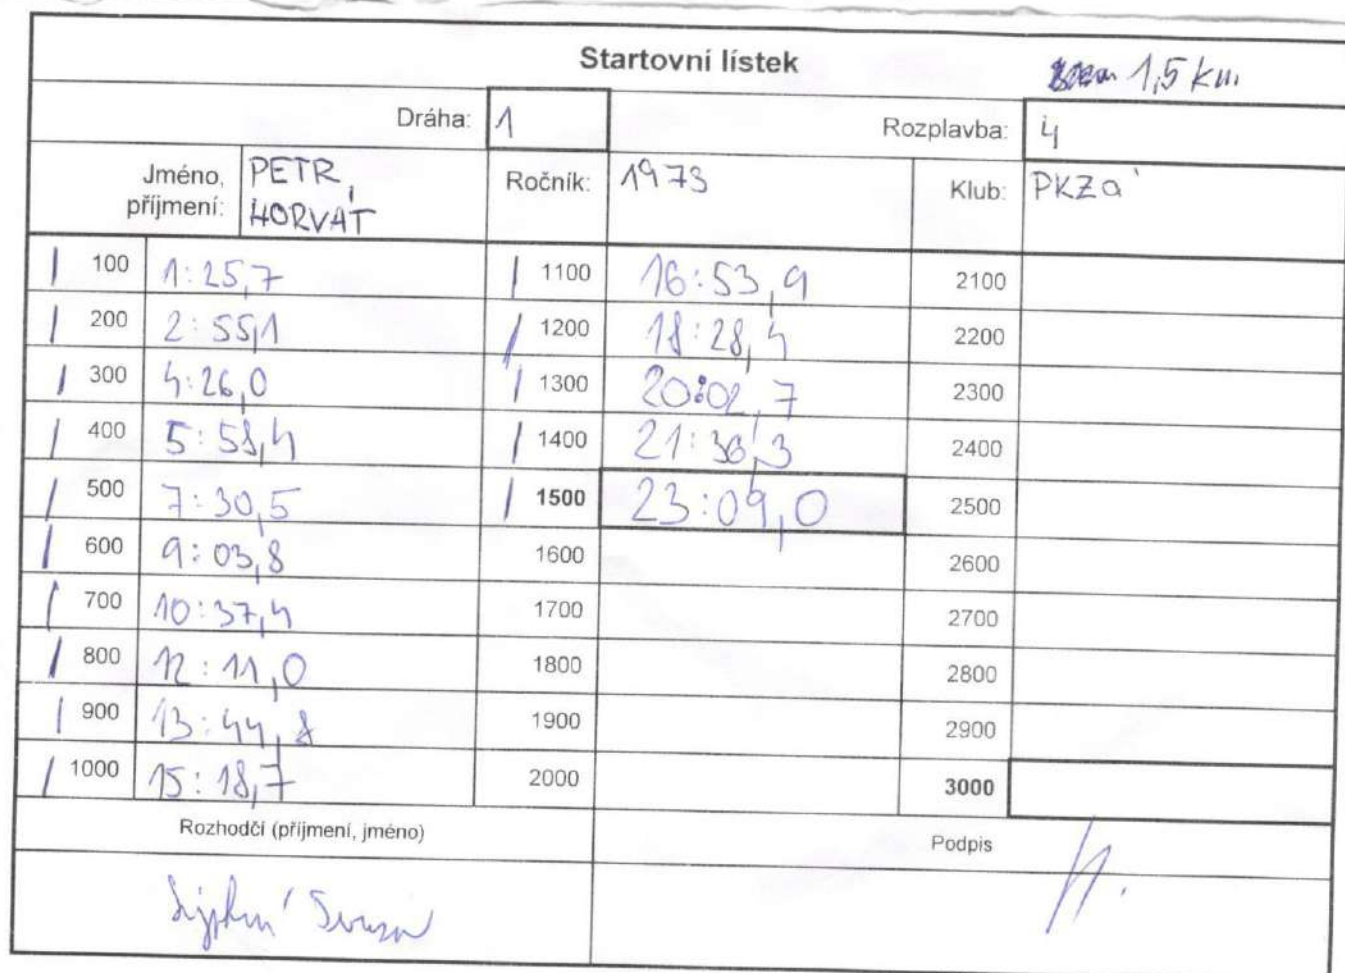 Startovní lístek 1,5 km
Dráha: 1 Rozplavba: 4
Jméno, příjmení: PETR HORVÁT Ročník: 1973 Klub: PKZá
100 1:25,7 1100 16:53,9 2100
200 2:55,1 1200 18:28,4 2200
300 4:26,0 1300 20:02,7 2300
400 5:58,4 1400 21:36,3 2400
500 7:30,5 1500 23:09,0 2500
600 9:03,8 1600 2600
700 10:37,4 1700 2700
800 12:11,0 1800 2800
900 13:44,8 1900 2900
1000 15:18,7 2000 3000
Rozhodčí (příjmení, jméno) Podpis